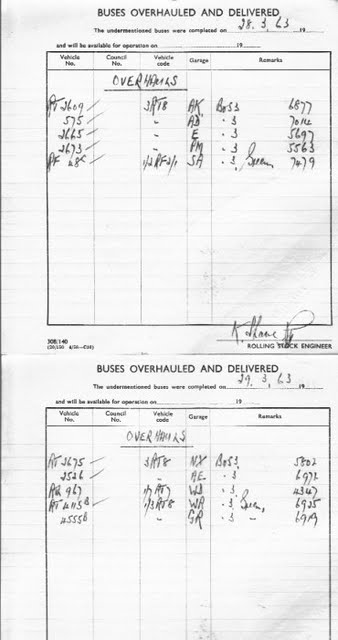 BUSES OVERHAULED AND DELIVERED
The undermentioned buses were completed on 28.3.63 19
and will be available for operation on 19
Vehicle No. Council No. Vehicle code Garage Remarks
OVERHAULS
RT 2609 3RT8 AK Bo53 6877
575 " AD . 3
2665 " E . 3 5697
2673 " PM . 3 5563
RF 48C 1/2RF2/1 SA . 3 Green 7479
ROLLING STOCK ENGINEER
308/140
BUSES OVERHAULED AND DELIVERED
The undermentioned buses were completed on 29.3.63 19
and will be available for operation on 19
Vehicle No. Council No. Vehicle code Garage Remarks
OVERHAULS
RT 2675 3RT8 NX Bo53 5802
2526 " AE . 3 6972
967 WD . 3 4347
RT 4115B 1/3RT8 WR . 3 Green 6925
4555B " GR . 3 " 6919